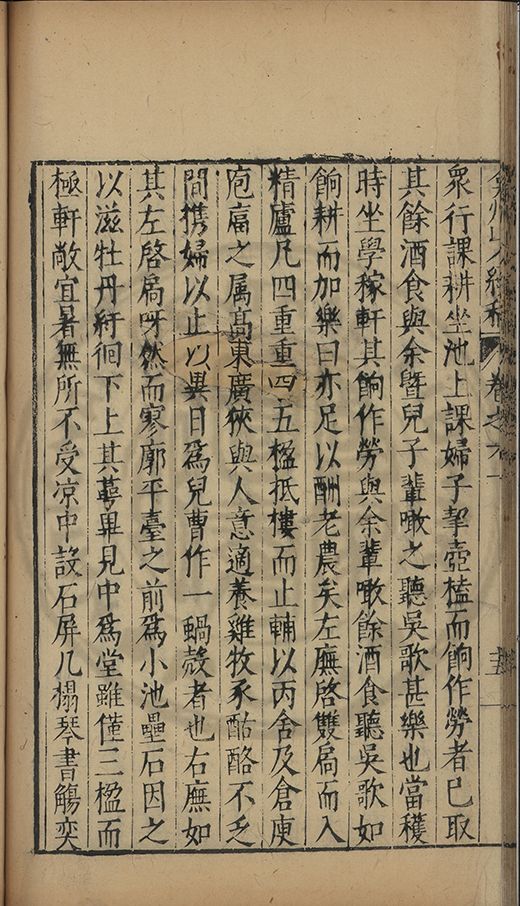 弇州山人續稿 卷之六十
衆行課耕坐池上課婦子挈壺榼而餉作勞者已取
其餘酒食與余暨兒子輩噉之聽吳歌甚樂也當穫
時坐學稼軒其餉作勞與余輩噉餘酒食聽吳歌如
餉耕而加樂曰亦足以酬老農矣左廡啓雙扃而入
精廬凡四重重四五楹抵樓而止輔以丙舍及倉庾
庖湢之属髙東廣狹與人意適養雞牧豕酤酪不乏
間携婦以止以異日爲兒曹作一蝸殼者也右廡如
其左啓扃呀然而寥廓平臺之前爲小池壘石因之
以滋牡丹紆徊下上其蕚畢見中爲堂雖僅三楹而
極軒敞宜暑無所不受凉中設石屏几榻琴書觴奕